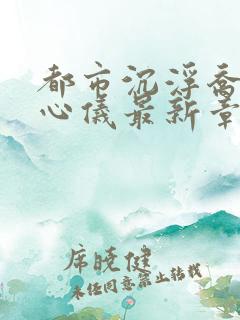 都市沉浮乔
心仪最新章
席晓健
未经同意禁止转载